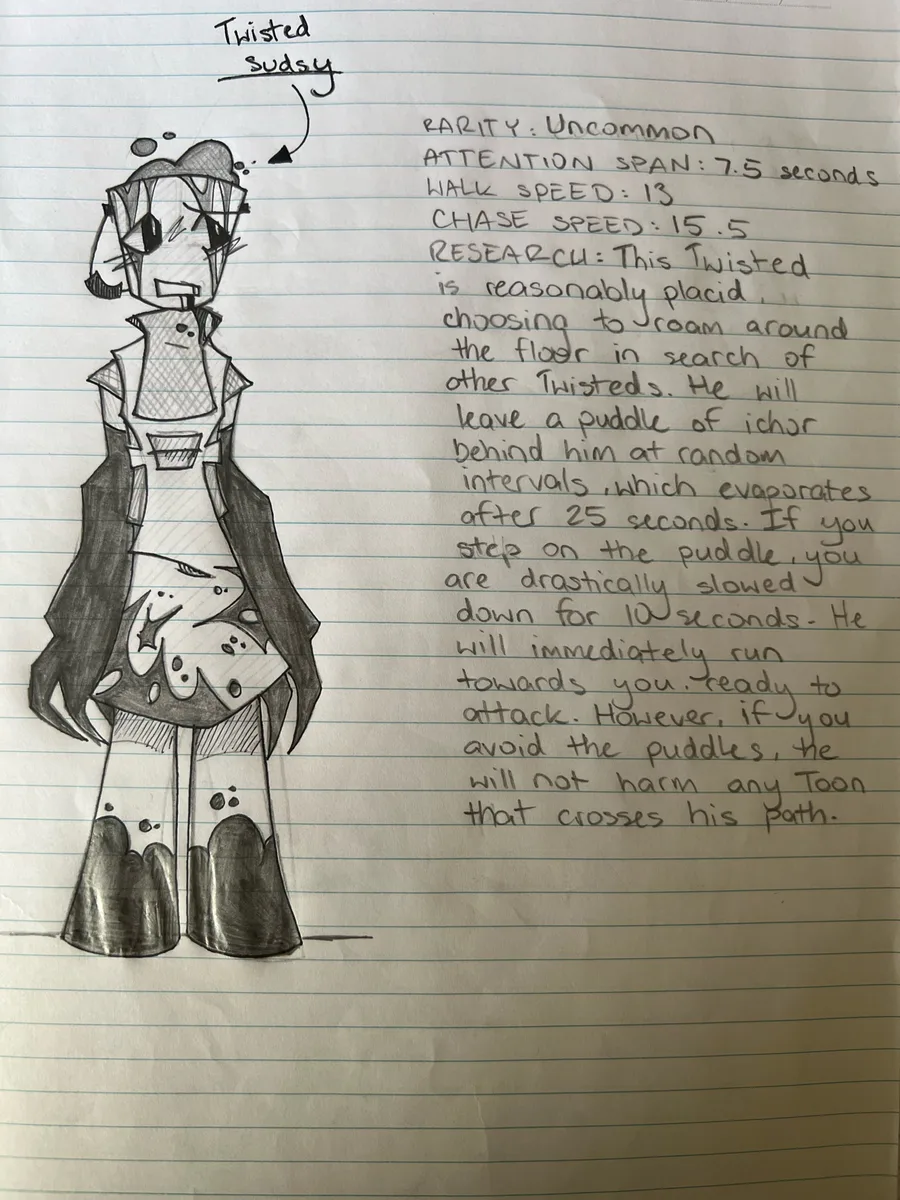 Twisted
Sudsy
RARITY: Uncommon
ATTENTION SPAN: 7.5 seconds
WALK SPEED: 13
CHASE SPEED: 15.5
RESEARCH: This Twisted
is reasonably placid,
choosing to roam around
the floor in search of
other Twisteds. He will
leave a puddle of ichor
behind him at random
intervals, which evaporates
after 25 seconds. If you
step on the puddle, you
are drastically slowed
down for 10 seconds. He
will immediately run
towards you, ready to
attack. However, if you
avoid the puddles, he
will not harm any Toon
that crosses his path.